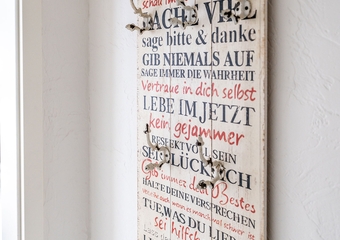 LACHE VIEL
sage bitte & danke
GIB NIEMALS AUF
SAGE IMMER DIE WAHRHEIT
Vertraue in dich selbst
LEBE IM JETZT
kein gejammer
RESPEKTVOLL SEIN
SEI GLÜCKLICH
Gib immer dein Bestes
HALTE DEINE VERSPRECHEN
TUE WAS DU LIEBST
sei hilfsb